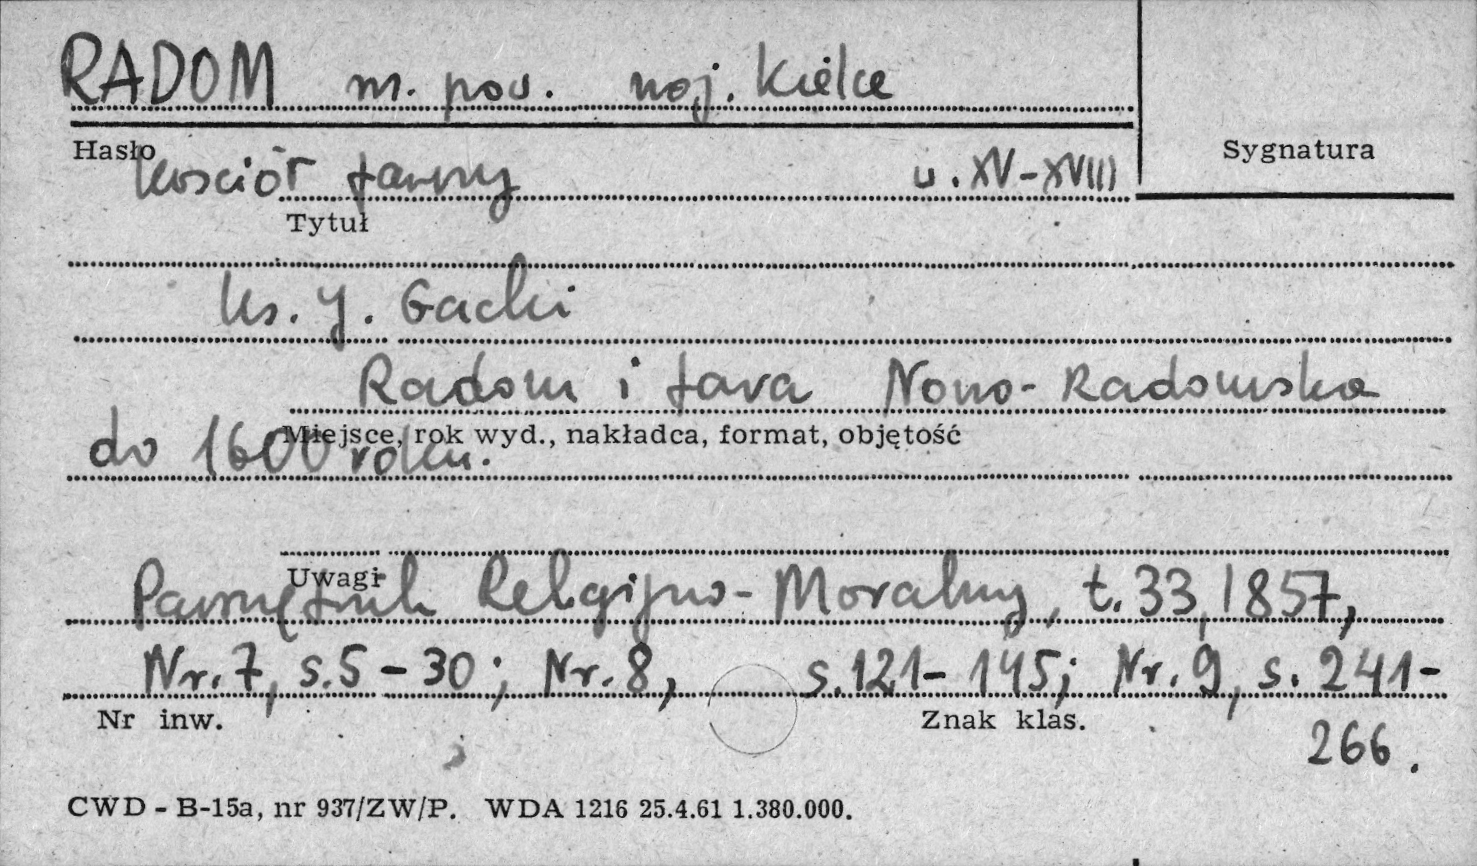 RADOM m. pow. woj. Kielce
Hasło
Sygnatura
Kościół farny w. XV-XVIII
Tytuł
Ks. J. Gacki
Radom i fara Nowo-Radomska
Miejsce, rok wyd., nakładca, format, objętość
do 1600 roku.
Uwagi
Pamiętnik Religijno-Moralny, t. 33, 1857,
Nr. 7, s. 5-30; Nr. 8, s. 121-145; Nr. 9, s. 241-
Nr inw. Znak klas.
266.
CWD - B-15a, nr 937/ZW/P. WDA 1216 25.4.61 1.380.000.